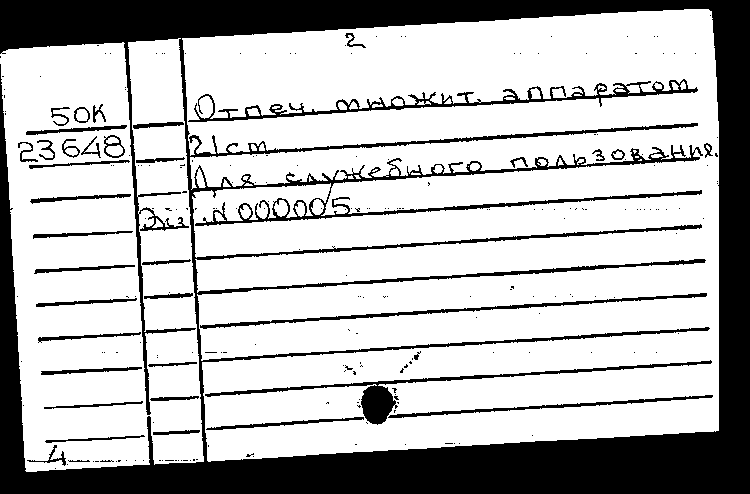 2
50К Отпеч. множит. аппаратом.
23648 21cm
Для служебного пользования.
Экз. N 000005.
4